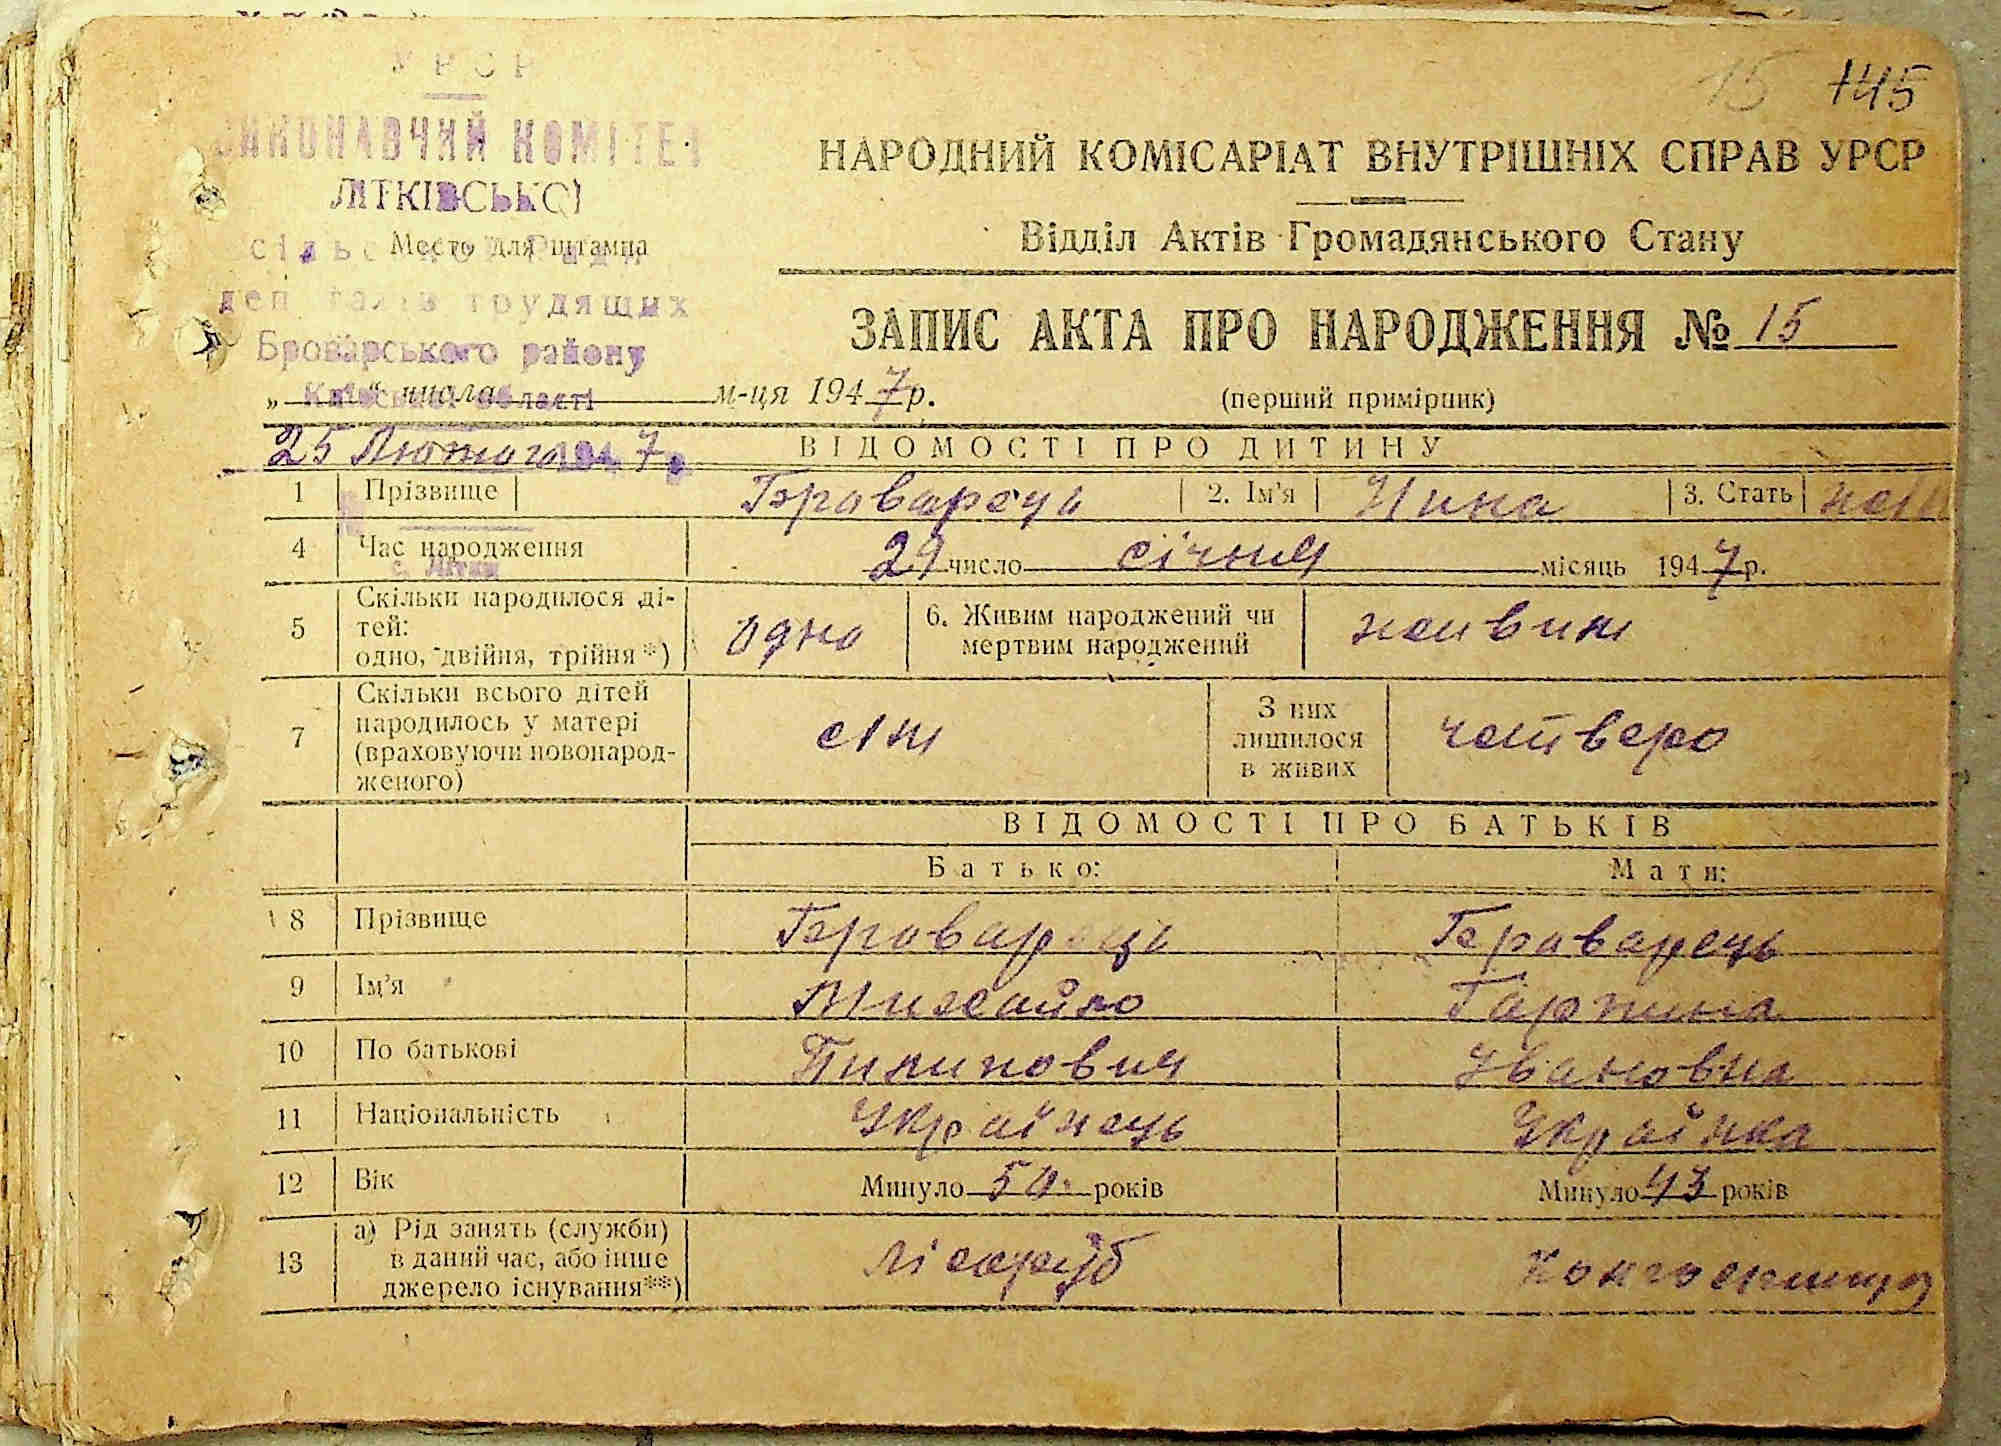 15 145
УРСР
ВИКОНАВЧИЙ КОМІТЕТ
ЛІТКІВСЬКОЇ
сільської Ради
Место для штампа
депутатів трудящих
Броварського району
Київської області
„ “ числа м-ця 1947 р.
25 Лютого 1947 р.
с. Літки
НАРОДНИЙ КОМІСАРІАТ ВНУТРІШНІХ СПРАВ УРСР
Відділ Актів Громадянського Стану
ЗАПИС АКТА ПРО НАРОДЖЕННЯ № 15
(перший примірник)
ВІДОМОСТІ ПРО ДИТИНУ
1 Прізвище Броварець 2. Ім'я Нина 3. Стать
4 Час народження 29 число січня місяць 1947 р.
5 Скільки народилося ді-
тей:
одно, двійня, трійня *) одно 6. Живим народжений чи
мертвим народжений живим
7 Скільки всього дітей
народилось у матері
(враховуючи новонарод-
женого) сім З них
лишилося
в живих четверо
ВІДОМОСТІ ПРО БАТЬКІВ
Батько: Мати:
8 Прізвище Броварець Броварець
9 Ім'я Михайло Гарпина
10 По батькові Пилипович Ивановна
11 Національність Українець Українка
12 Вік Минуло 50 років Минуло 43 років
13 а) Рід занять (служби)
в даний час, або інше
джерело існування**) лісоруб Колгоспниця